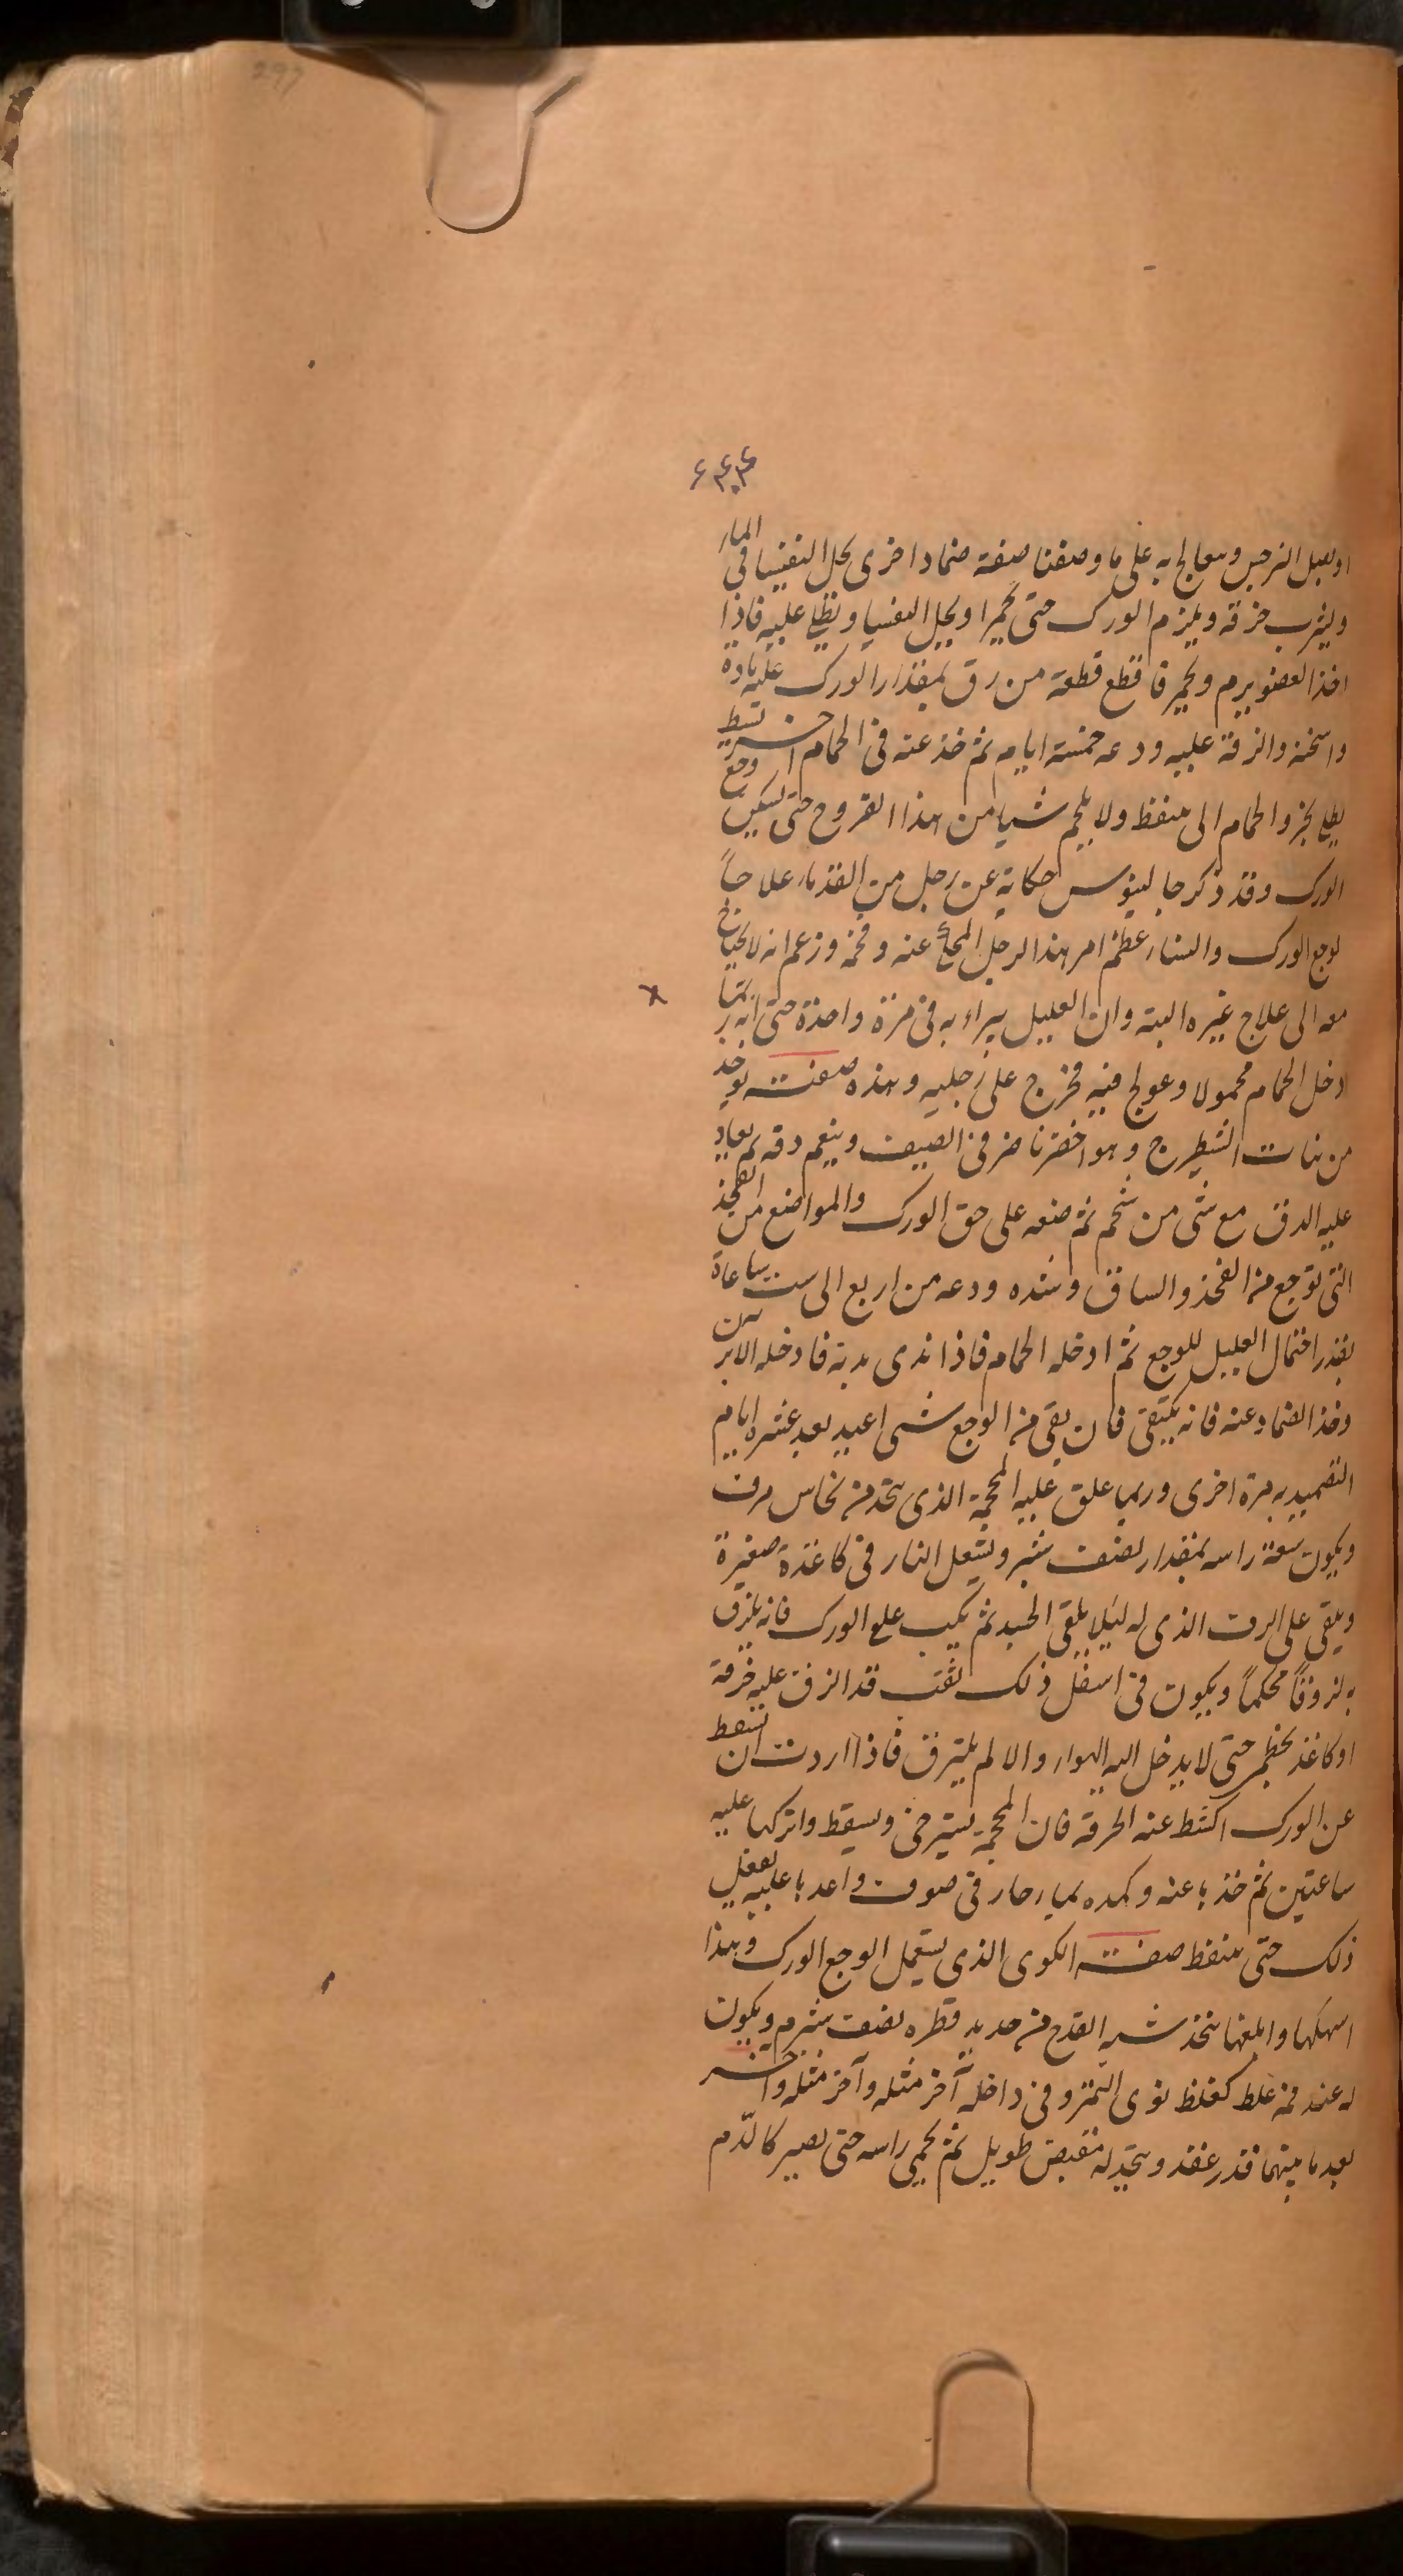 297
اوبصل النرجس ويعالج به على ما وصفنا صفة ضماد اخرى يحل التفسيا فى الماء
ويشرب خرقة ويلزم الورك حتى يحمرا ويحل التفسيا ويطلى عليه فاذا
اخذ العضو يرم ويحمر فاقطع قطعة من رق بمقدار الورك عليه
واسخنه والزقة عليه ودعه خمسة ايام ثم خذ عنه فى الحمام
الحمام الى ولا يلحم شيا من هذا القروح حتى يسكن وجع
الورك وقد ذكر جالينوس حكاية عن رجل من القدماء علاجاً
لوجع الورك والنساء عظم امر هذا الرجل عنه وفخمه وزعم انه لا يحتاج
معه الى علاج غيره البتة وان العليل يبراء به فى مرة واحدة حتى انه ربما
ادخل الحمام محمولا وعولج فيه فخرج على رجليه وهذه صفته يوخد
من نبات الشيطرج وهو اخضر ناضر فى الصيف وينعم دقه ثم يعاد
عليه الدق مع شى من شحم ثم ضعه على حق الورك والمواضع من الفخذ
التى توجع من الفخذ والساق وشده ودعه من اربع الى ست ساعاة
بقدر احتمال العليل للوجع ثم ادخله الحمام فاذا ندى بدنه فادخله الابزن
وخذ الضماد عنه فانه فان بقى من الوجع شى اعيد بعد عشره ايام
التضميد به مرة اخرى وربما علق عليه المحجمة الذى يتخذ من نحاس
ويكون سعة راسه بمقدار نصف شبر ويشعل النار فى كاغذة صغيرة
ويلقى على الذى له ليلا يلقى الجسد ثم يكب على الورك فانه يلزق
به لزوقاً محكماً ويكون فى اسفل ذلك ثقب قد الزق عليه خرقة
اوكاغذ حتى لا يدخل اليه الهواء والا لم يلتزق فاذا اردت ان تسقط
عن الورك اكشط عنه الخرقة فان المحجمة تسترخى وتسقط واتركها عليه
ساعتين ثم خذها عنه وكمده بماء حار فى صوف واعدها عليه تفعل
ذلك حتى صفة الكوى الذى يستعمل الوجع الورك وهذا
اسهلها وابلغها يتخذ شبه القدح من حديد قطره نصف شبر ويكون
له عند فمه غلظ كغلظ نوى التمر وفى داخله آخر مثله وآخر مثله وآخر
بعد ما بينهما قدر عقد ويتخذ له مقبض طويل ثم يحمى راسه حتى يصير كالدم